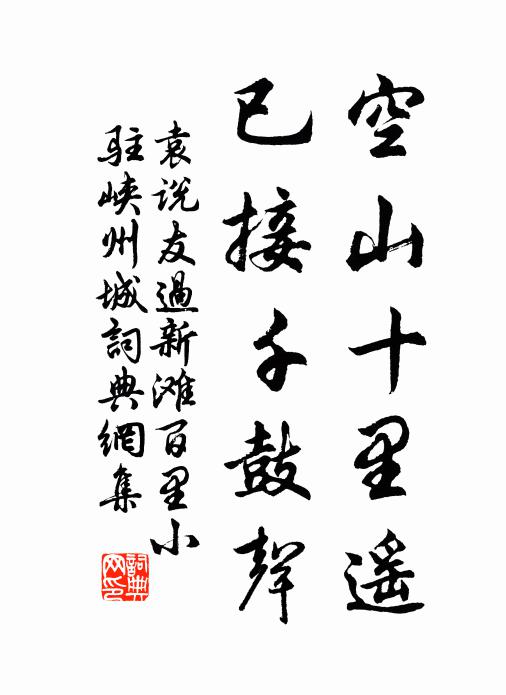 空山十里遥
已接千鼓聲
袁说友過新滩百里小
驻峡州城詞典網集
詞典
网印